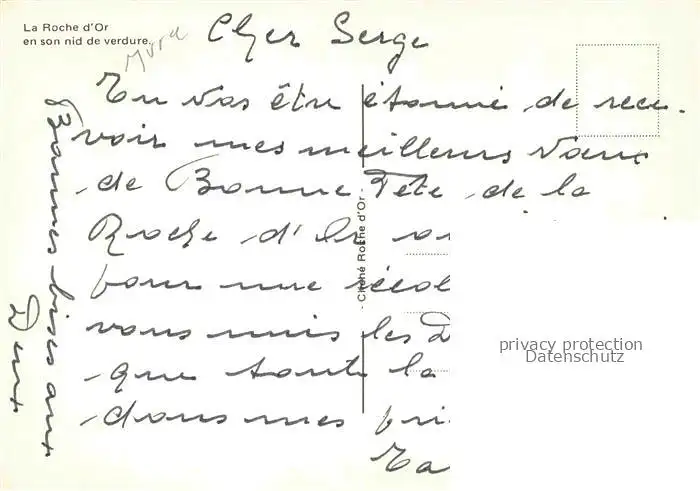 La Roche d'Or
en son nid de verdure.
Jura
Cher Serge
Tu vas être étonné de rece-
voir mes meilleurs Vœux
de Bonne Fête de la
Roche d'Or
pour une
vous mis les
que toute la
dans mes
Bonnes bises aux
Deux
- Cliché Roche d'Or -
privacy protection
Datenschutz